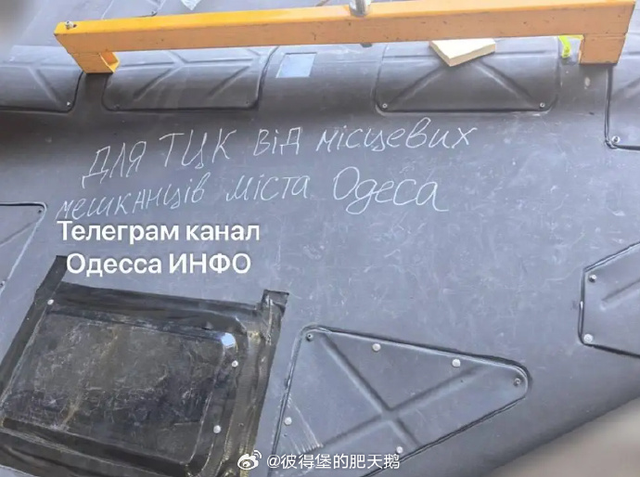 Для ТЦК від місцевих
мешканців міста Одеса
Телеграм канал
Одесса ИНФО
@彼得堡的肥天鹅